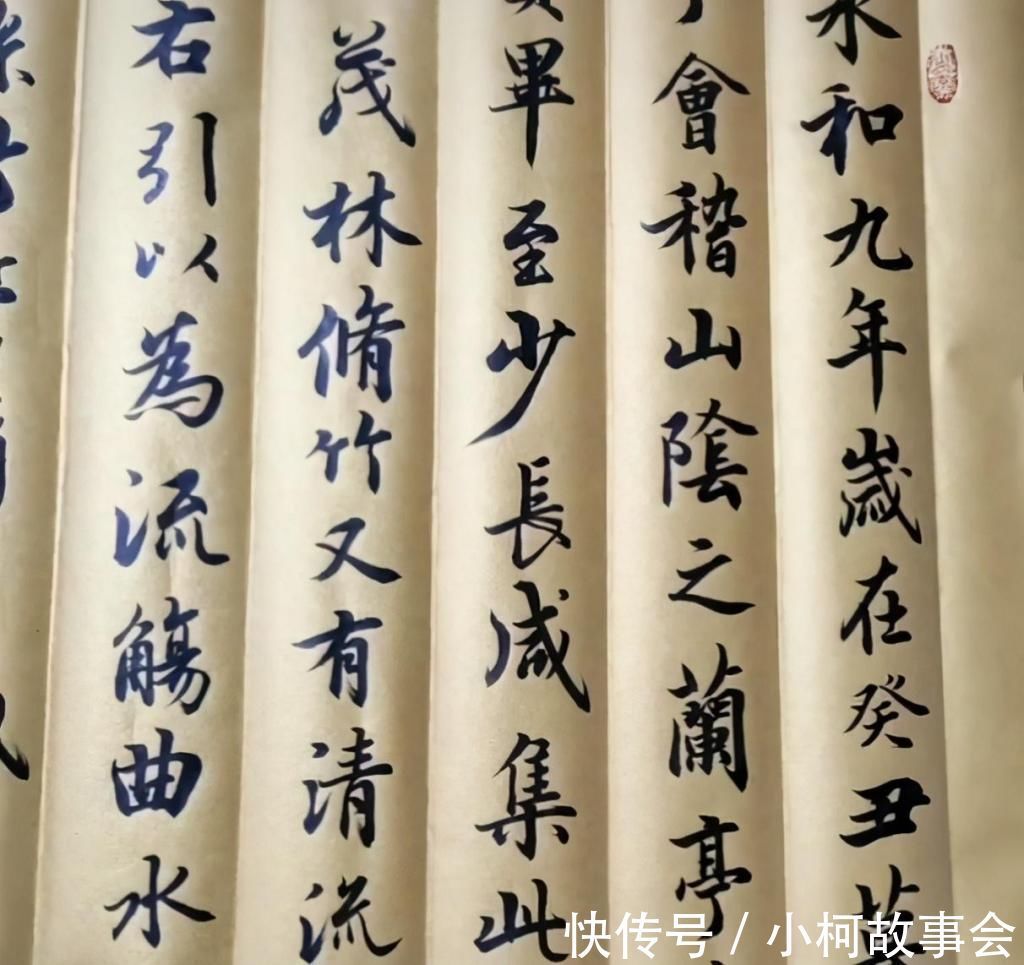 永和九年歲在癸丑暮
會稽山陰之蘭亭
畢至少長咸集此
茂林脩竹又有清流
右引以為流觴曲水
快传号/小柯故事会